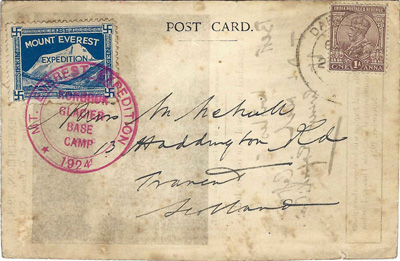 POST CARD.
MOUNT EVEREST
EXPEDITION
INDIA POSTAGE & REVENUE
1A
ONE ANNA
MT. EVEREST EXPEDITION
RONGBUK
GLACIER
BASE
CAMP
1924
Miss
13 Haddington Rd
Tranent
Scotland